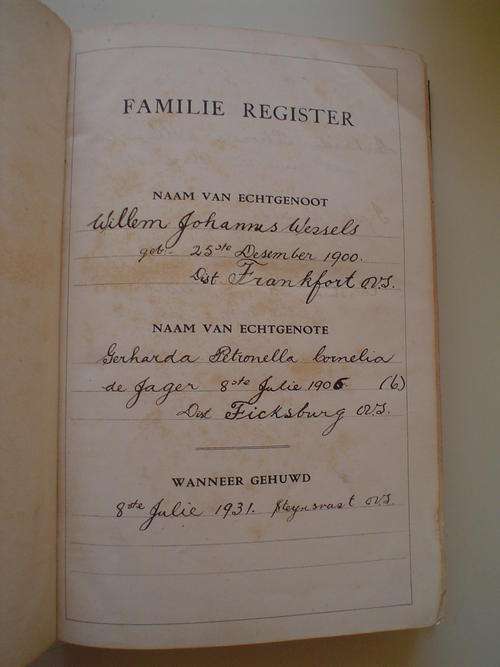 FAMILIE REGISTER
NAAM VAN ECHTGENOOT
Willem Johannes Wessels
geb. 25ste Desember 1900.
Dist Frankfort O.V.S.
NAAM VAN ECHTGENOTE
Gerharda Petronella Cornelia
de Jager 8ste Julie 1906 (6)
Dist Ficksburg O.V.S.
WANNEER GEHUWD
8ste Julie 1931. Steynsrust O.V.S.